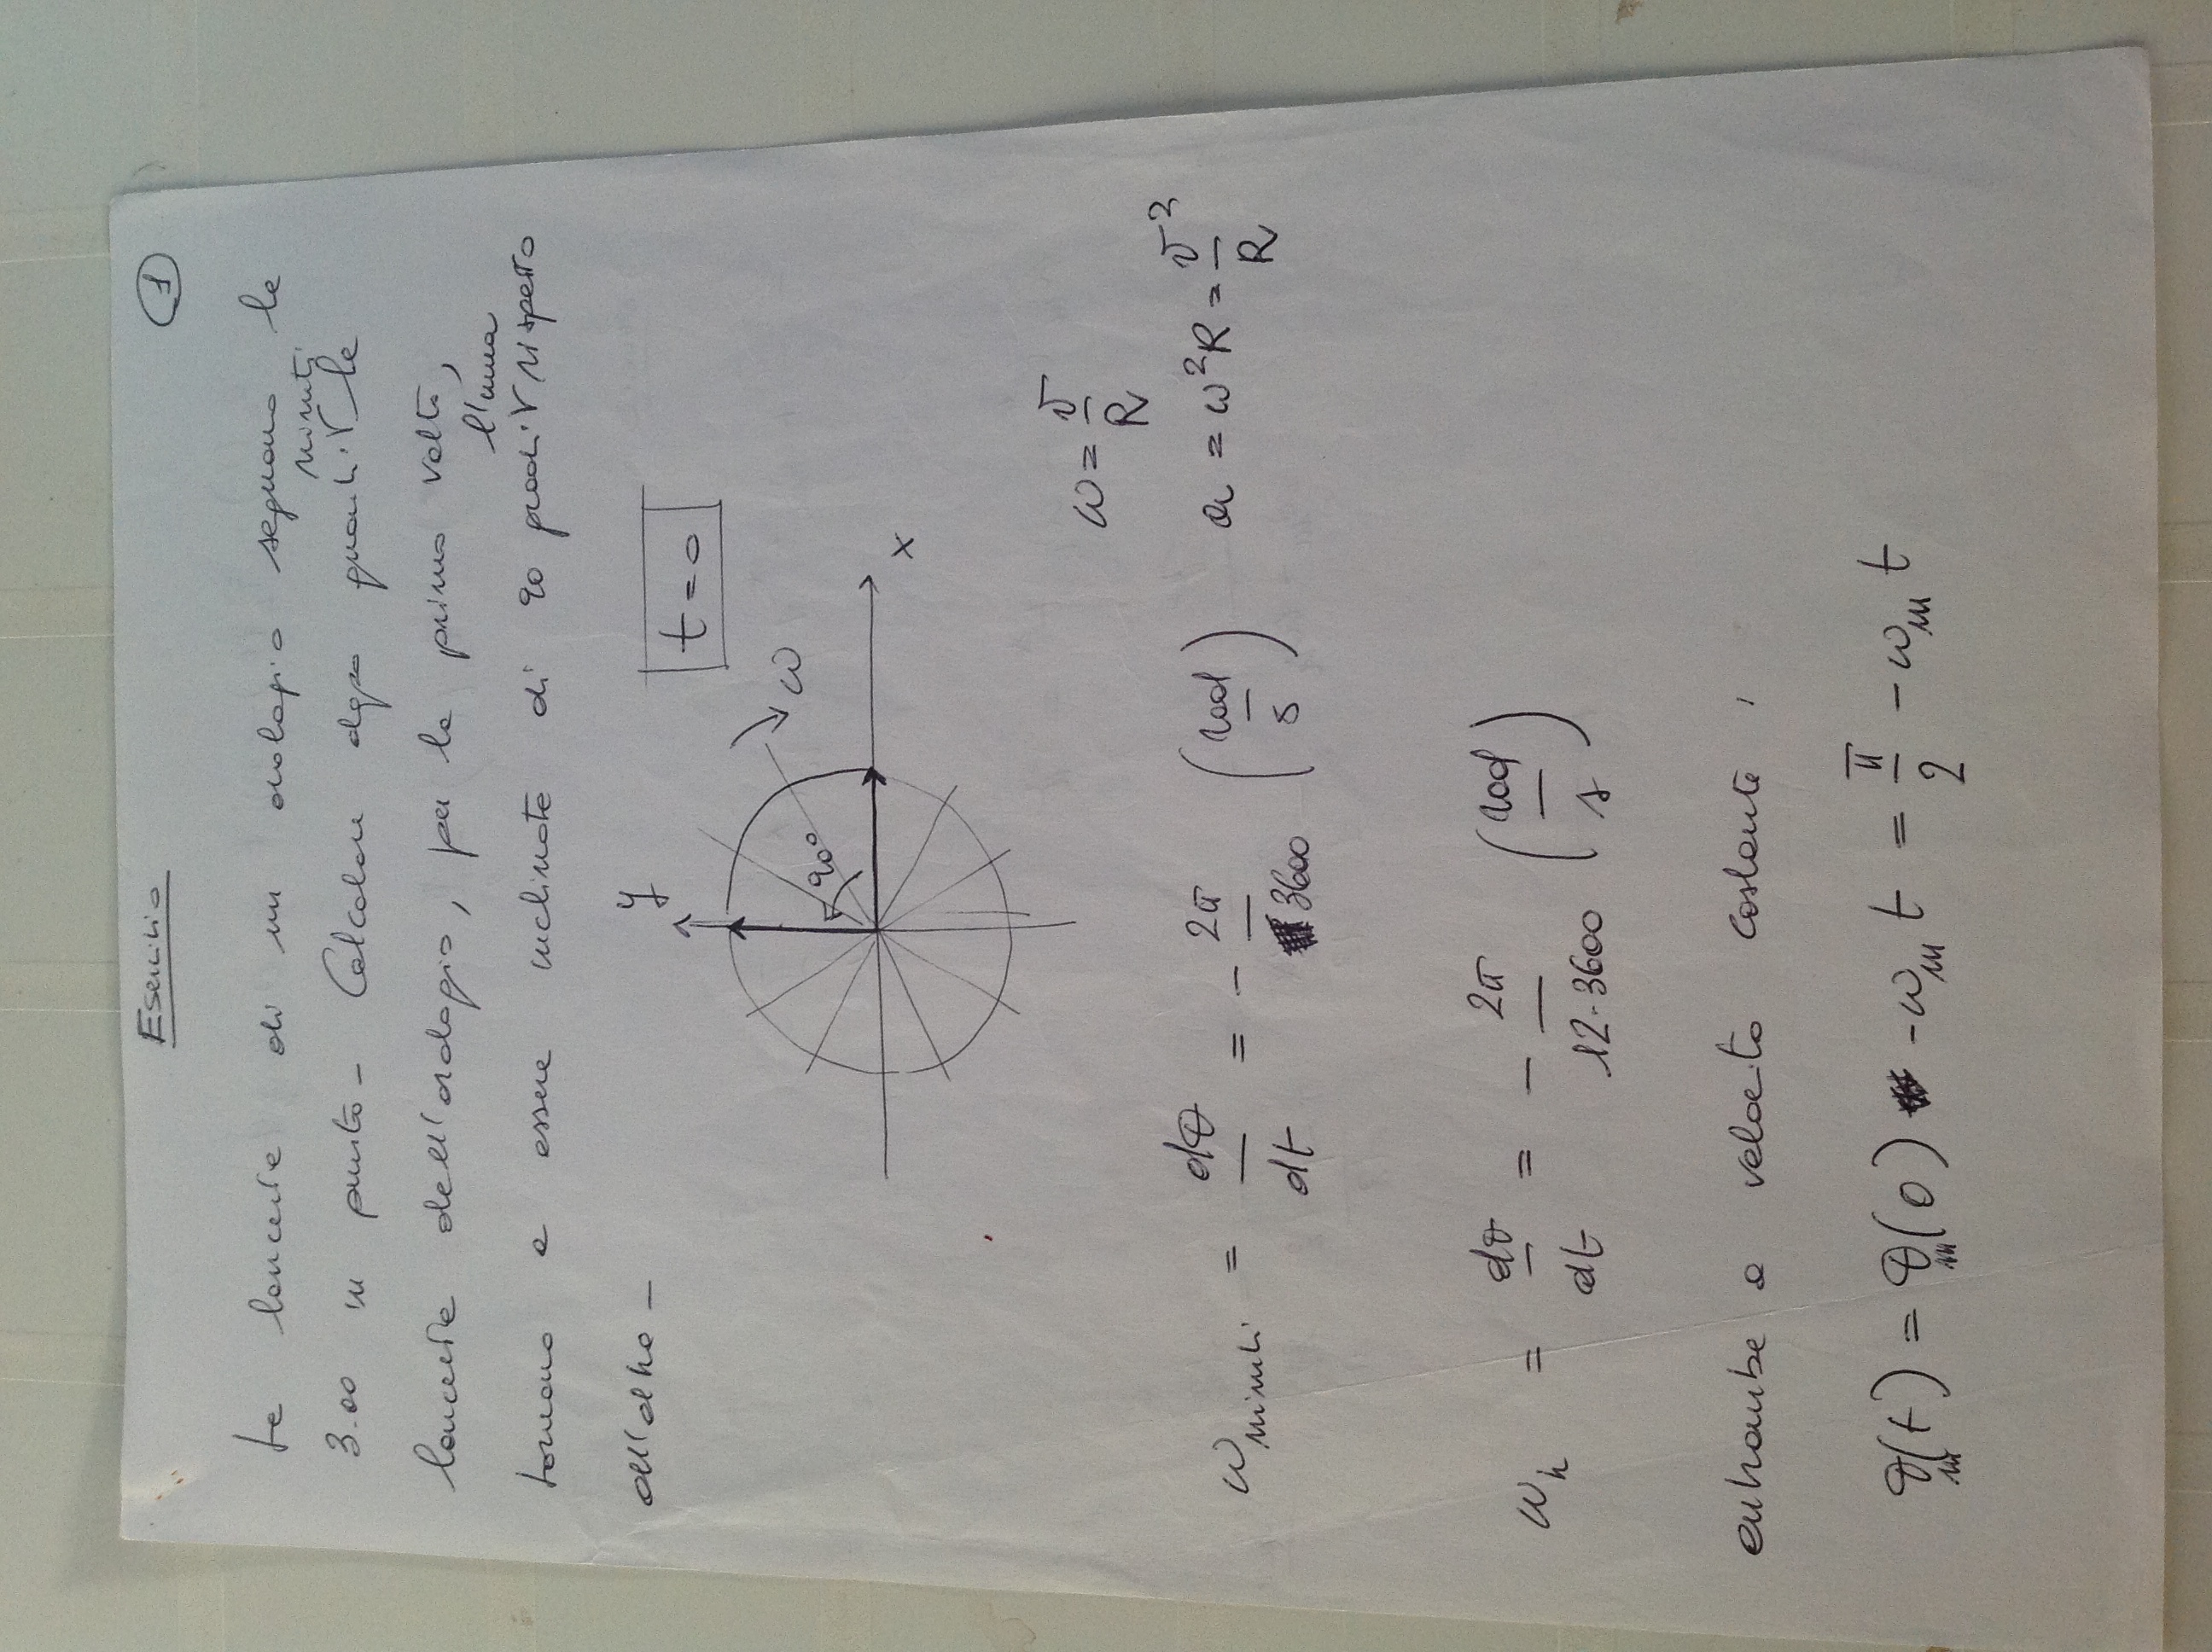 Esercizio
1
Le lancette di un orologio segnano le
minuti
3.00 in punto - Calcolare dopo quanti le
lancette dell'orologio, per la prima volta,
l'una
tornano a essere inclinate di 90 gradi rispetto
all'altra -
y
t = 0
ω
90°
x
ω = v/R
ω minuti = dθ/dt = - 2π/3600 (rad/s)
a = ω²R = v²/R
ω h = dθ/dt = - 2π/12·3600 (rad/s)
entrambe a velocità costante,
θm(t) = θm(0) - ωm t = π/2 - ωm t